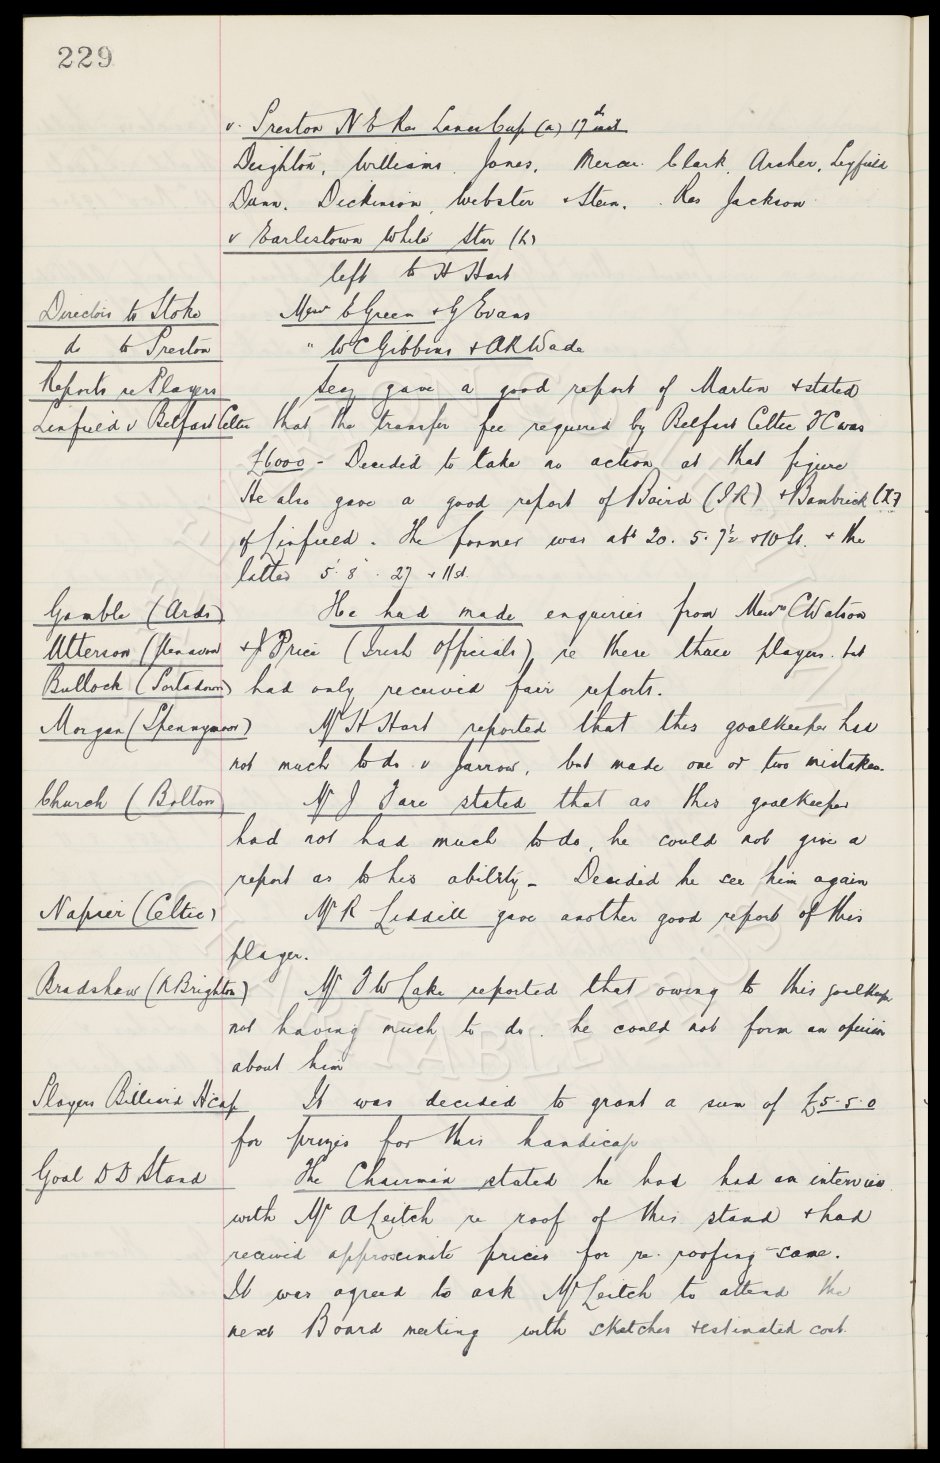 229
v. Preston N E Res Lancs Cup (a) 17th inst
Deighton, Williams, Jones, Mercer. Clark, Archer, Leyfield
Dunn. Dickinson, Webster & Stein. Res Jackson
v Earlestown White Star (h)
left to H Hart
Directors to Stoke Messrs E Green & G Evans
do to Preston " W C Gibbins & A R Wade
Reports re Players Secy gave a good report of Martin & stated
Linfield v Belfast Celtic that the transfer fee required by Belfast Celtic FC was
£6000 - Decided to take no action at that figure
He also gave a good report of Baird (I R) & Bambrick (C F)
of Linfield. The former was abt 20. 5. 7½ & 10 St. & the
latter 5' 8". 27 & 11 st.
Gamble (Ards) He had made enquiries from Messrs C Watson
Utterson (Glenavon & J Price (Irish Officials) re these three players. but
Bullock (Portadown) had only received fair reports.
Morgan (Spennymoor) Mr H Hart reported that this goalkeeper had
not much to do v Jarrow, but made one or two mistakes.
Church (Bolton) Mr J Fare stated that as this goalkeeper
had not had much to do, he could not give a
report as to his ability - Decided he see him again
Napier (Celtic) Mr R Liddell gave another good report of this
player.
Bradshaw (N Brighton) Mr F W Lake reported that owing to this goalkeeper
not having much to do. he could not form an opinion
about him
Players Billiard H'cap It was decided to grant a sum of £5-5-0
for prizes for this handicap
Goal D D Stand The Chairman stated he had had an interview
with Mr A Leitch re roof of this stand & had
received approximate prices for re-roofing same.
It was agreed to ask Mr Leitch to attend the
next Board meeting with sketches & estimated cost.